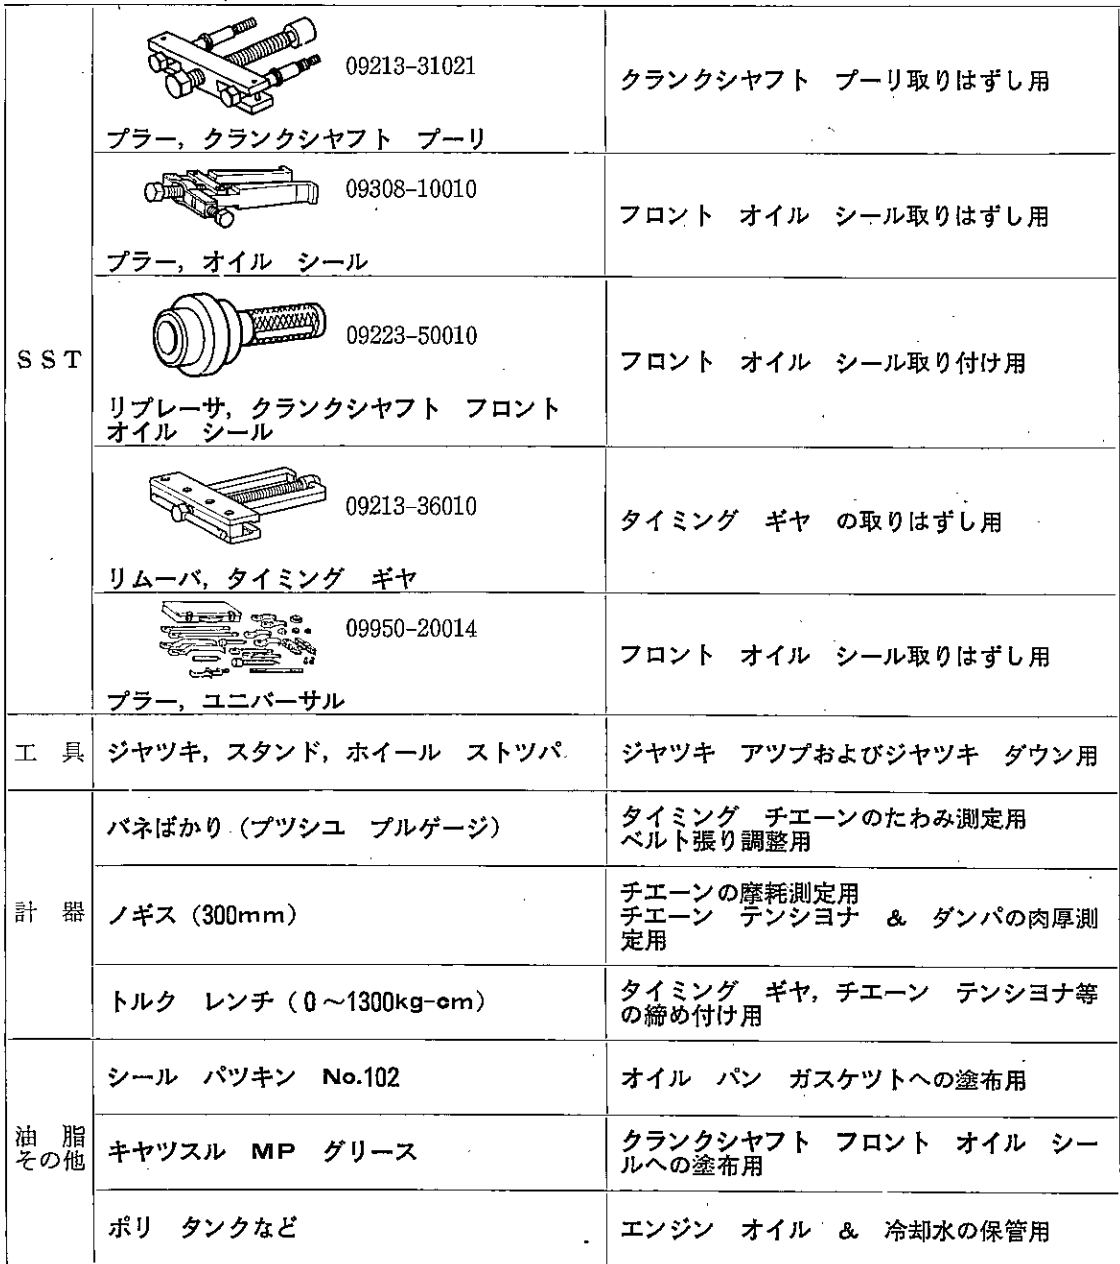 09213-31021
プラー，クランクシヤフト　プーリ
クランクシヤフト　プーリ取りはずし用
09308-10010
プラー，オイル　シール
フロント　オイル　シール取りはずし用
SST
09223-50010
リプレーサ，クランクシヤフト　フロント
オイル　シール
フロント　オイル　シール取り付け用
09213-36010
リムーバ，タイミング　ギヤ
タイミング　ギヤ　の取りはずし用
09950-20014
プラー，ユニバーサル
フロント　オイル　シール取りはずし用
工　具
ジヤツキ，スタンド，ホイール　ストツパ
ジヤツキ　アツプおよびジヤツキ　ダウン用
計　器
バネばかり（プツシユ　プルゲージ）
タイミング　チエーンのたわみ測定用
ベルト張り調整用
ノギス（300mm）
チエーンの摩耗測定用
チエーン　テンシヨナ　&　ダンパの肉厚測
定用
トルク　レンチ（0～1300kg-cm）
タイミング　ギヤ，チエーン　テンシヨナ等
の締め付け用
油　脂
その他
シール　パツキン　No.102
オイル　パン　ガスケツトへの塗布用
キヤツスル　MP　グリース
クランクシヤフト　フロント　オイル　シー
ルへの塗布用
ポリ　タンクなど
エンジン　オイル　&　冷却水の保管用